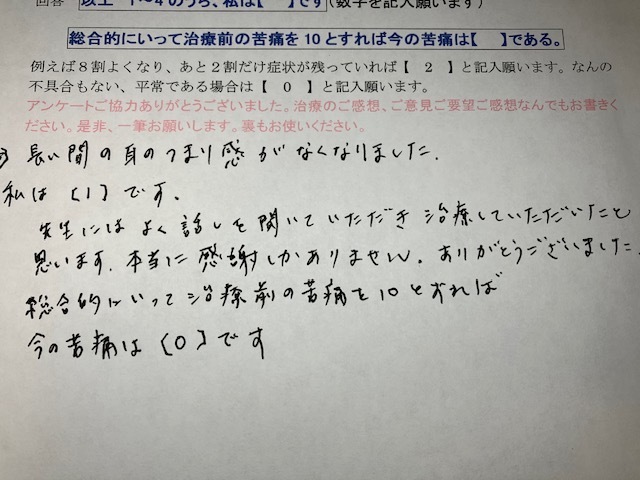 回答 以上 1～4のうち、私は【　】です(数字を記入願います)
総合的にいって治療前の苦痛を10とすれば今の苦痛は【　】である。
例えば８割よくなり、あと２割だけ症状が残っていれば【　２　】と記入願います。なんの
不具合もない、平常である場合は【　０　】と記入願います。
アンケートご協力ありがとうございました。治療のご感想、ご意見ご要望ご感想なんでもお書きく
ださい。是非、一筆お願いします。裏もお使いください。
長い間の耳のつまり感がなくなりました.
私は〔1〕です.
先生にはよく話しを聞いていただき治療していただいたこと
思います.本当に感謝しかありません。ありがとうございました.
総合的にいって治療前の苦痛を10とすれば
今の苦痛は〔0〕です